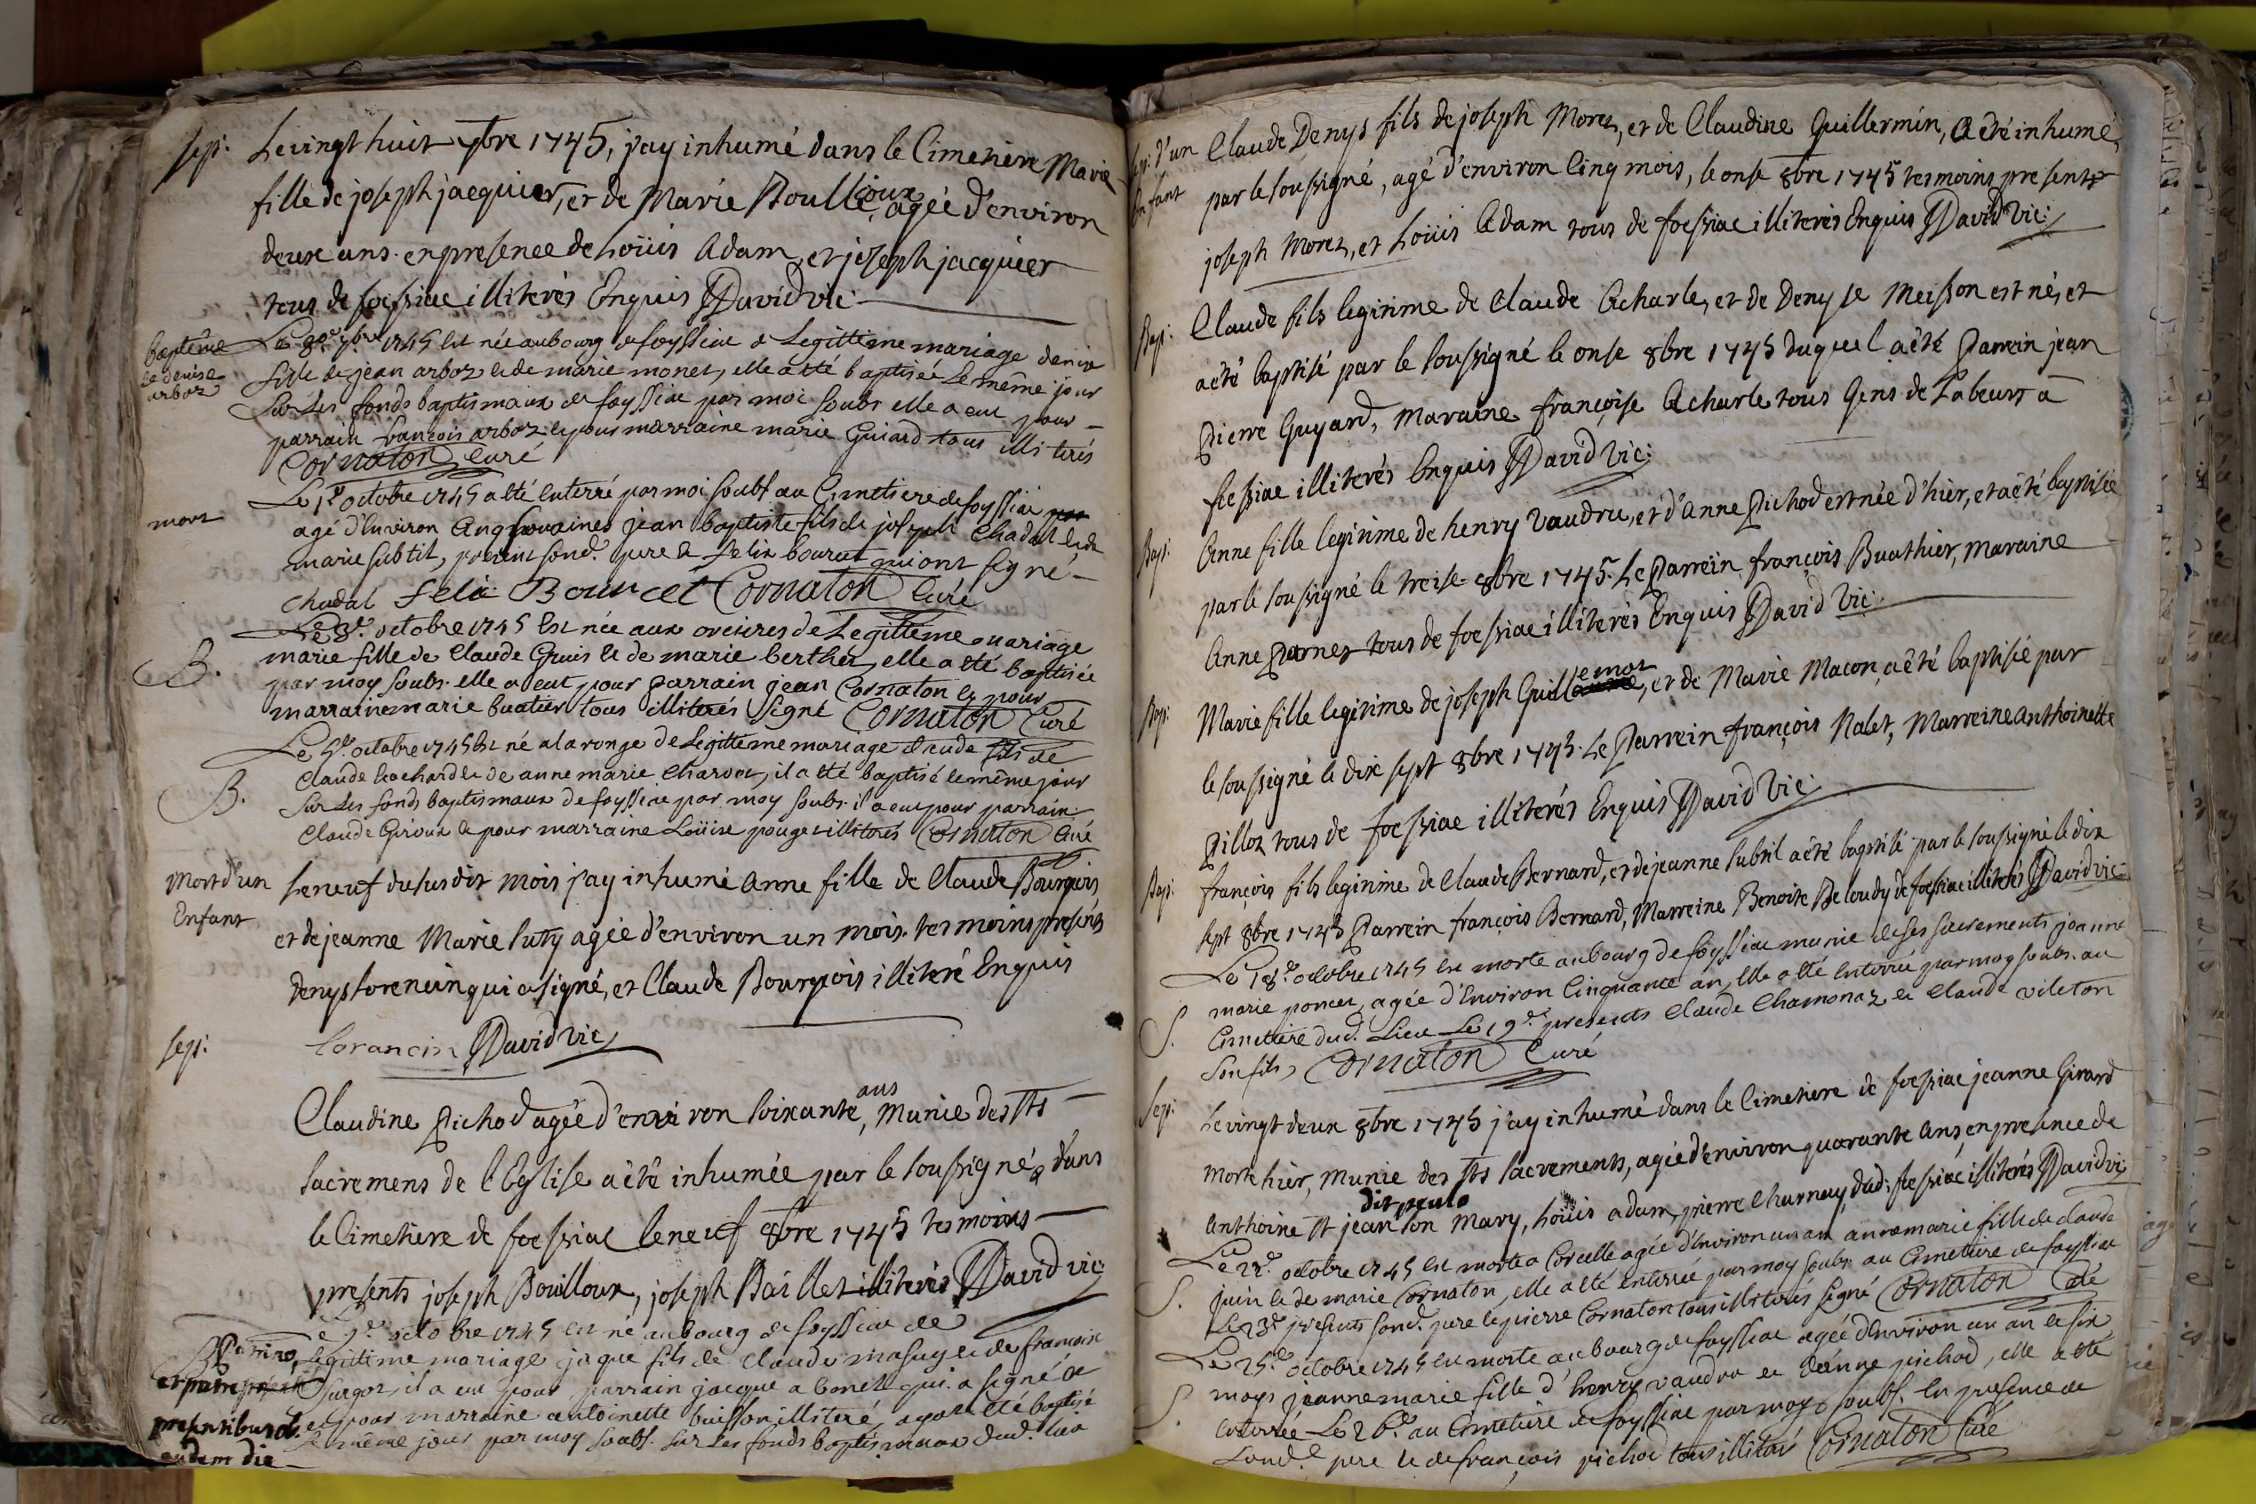 sep: Le vingt huit 7bre 1745, j'ay inhumé dans le Cimetiere Marie
fille de joseph jacquier, et de Marie Boullioux, agée d'environ
deux ans. en presence de Loüis Adam, et joseph jacquier
tous de foessiac illiterés Enquis David vic:
baptême de denise arboz
Le 7bre 1745 est née au bourg de foyssiac de Legittime mariage denise
fille de jean arboz et de marie monet, elle a été baptisée le même jour
sur les fonds baptismaux de foyssiac par moi soubs elle a eut pour
parrain françois arboz et pour marraine marie Guiard tous illiterés
Cornaton Curé
mort
Le 1er octobre 1745 a été Enterré par moi soubs. au Cimetiere de foyssiac
agé d'Environ Cinq semaines jean baptiste fils de joseph Chadal et de
marie subtil, present sond. pere & felix bourcet qui ont signé
Chadal felix Bourcet Cornaton Curé
B. Le 3e octobre 1745 Est née aux orcieres de Legittime mariage
marie fille de Claude Gruis et de marie berthet, elle a été baptisée
par moy soubs. elle a eut pour parrain jean Cornaton et pour
marraine marie buatier tous illiterés signé Cornaton Curé
B. Le 5e octobre 1745 Est né a la ronge de Legittime mariage claude fils de
Claude et de anne marie Charvet, il a été baptisé le même jour
sur les fonds baptismaux de foyssiac par moy soubs. il a eu pour parrain
Claude Giroux & pour marraine Loüise pouget illiterés Cornaton Curé
Mort d'un Enfant
Le neuf du susdit mois j'ay inhumé Anne fille de Claude Bourgeois
et de jeanne Marie Suty agée d'environ un mois. tesmoins presents
denys Lorencin qui a signé, et Claude Bourgeois illiteré Enquis
Lorancin David vic
sep:
Claudine Pichod agée d'environ soixante ans, Munie des Sts
sacremens de l'Eglise a été inhumée par le soussigné dans
le Cimetiere de foessiac le neuf 8bre 1745 tesmoins
presents joseph Bouilloux, joseph Baillet illiterés David vic:
Le octobre 1745 est né au bourg de foyssiac de
Legitime mariage jaque fils de Claude masuy et de francoise
il a eut pour parrain jacque a bonet qui a signé &
et pour marraine antoinette buisson illiteré, ayant été baptisé
le même jour par moy soubs. sur les fonds baptismaux dud. lieu
et patre
presentibus
eadem die
sep: d'un Enfant
Claude Denys fils de joseph Morez, et de Claudine Guillermin, a été inhumé
par le soussigné, agé d'environ Cinq mois, le onse 8bre 1745 tesmoins presents
joseph Morez, et Loüis Adam tous de foessiac illiterés Enquis David Vic:
Bap: Claude fils legitime de Claude Acharle, et de Denyse Meisson est né, et
a été baptisé par le soussigné le onse 8bre 1745 duquel a été Parrein jean
Pierre Guyard, Maraine françoise Acharle tous Gens de Labeurs a
foessiac illiterés Enquis David Vic:
Bap: Anne fille legitime de henry Vaudru, et d'Anne Pichod est née d'hier, et a été baptisée
par le soussigné le treise 8bre 1745. Le Parrein françois Buathier, Maraine
Anne Parnet tous de foessiac illiterés Enquis David Vic:
Bap: Marie fille legitime de joseph Guillemot, et de Marie Macon, a été baptisée par
le soussigné le dix sept 8bre 1745. Le Parrein françois Nalet, Marreine Anthoinette
Pilloz tous de foessiac illiterés Enquis David Vic:
Bap: françois fils legitime de Claude Bernard, et de jeanne Subtil a été baptisé par le soussigné le dix
sept 8bre 1745 Parrein françois Bernard, Marreine Benoite Beloudy de foessiac illiterés David vic
S. Le 18e octobre 1745 est morte au bourg de foyssiac munie de ses sacrements jeanne
marie poncet, agée d'Environ Cinquante an, Elle a été Enterrée par moy soubs. au
Cimetiere dud. Lieu Le 19e presents Claude Chamonaz et Claude vileton
son fils, Cornaton Curé
Sep: Le vingt deux 8bre 1745 j'ay inhumé dans le Cimetiere de foessiac jeanne Girard
morte hier, Munie des Sts sacrements, agée d'environ quarante ans, en presence de
Anthoine St jean dit son Mary, Loüis adam, pierre Charnay, dud: foessiac illiterés David vic
S. Le 22e octobre 1745 est morte a Corcelle agée d'Environ un an anne marie fille de claude
juin et de marie Cornaton, elle a été Enterrée par moy soubs au Cimetiere de foyssiac
Le 23e presents sond. pere et pierre Cornaton tous illiterés signé Cornaton Curé
S. Le 25e octobre 1745 est morte au bourg de foyssiac agée d'Environ un an et six
moys jeanne marie fille d'henry vaudru et d'anne pichod, elle a été
enterrée Le 26e au Cimetiere de foyssiac par moy soubs. En presence de
sond. pere et de françois pichod tous illiterés Cornaton Curé